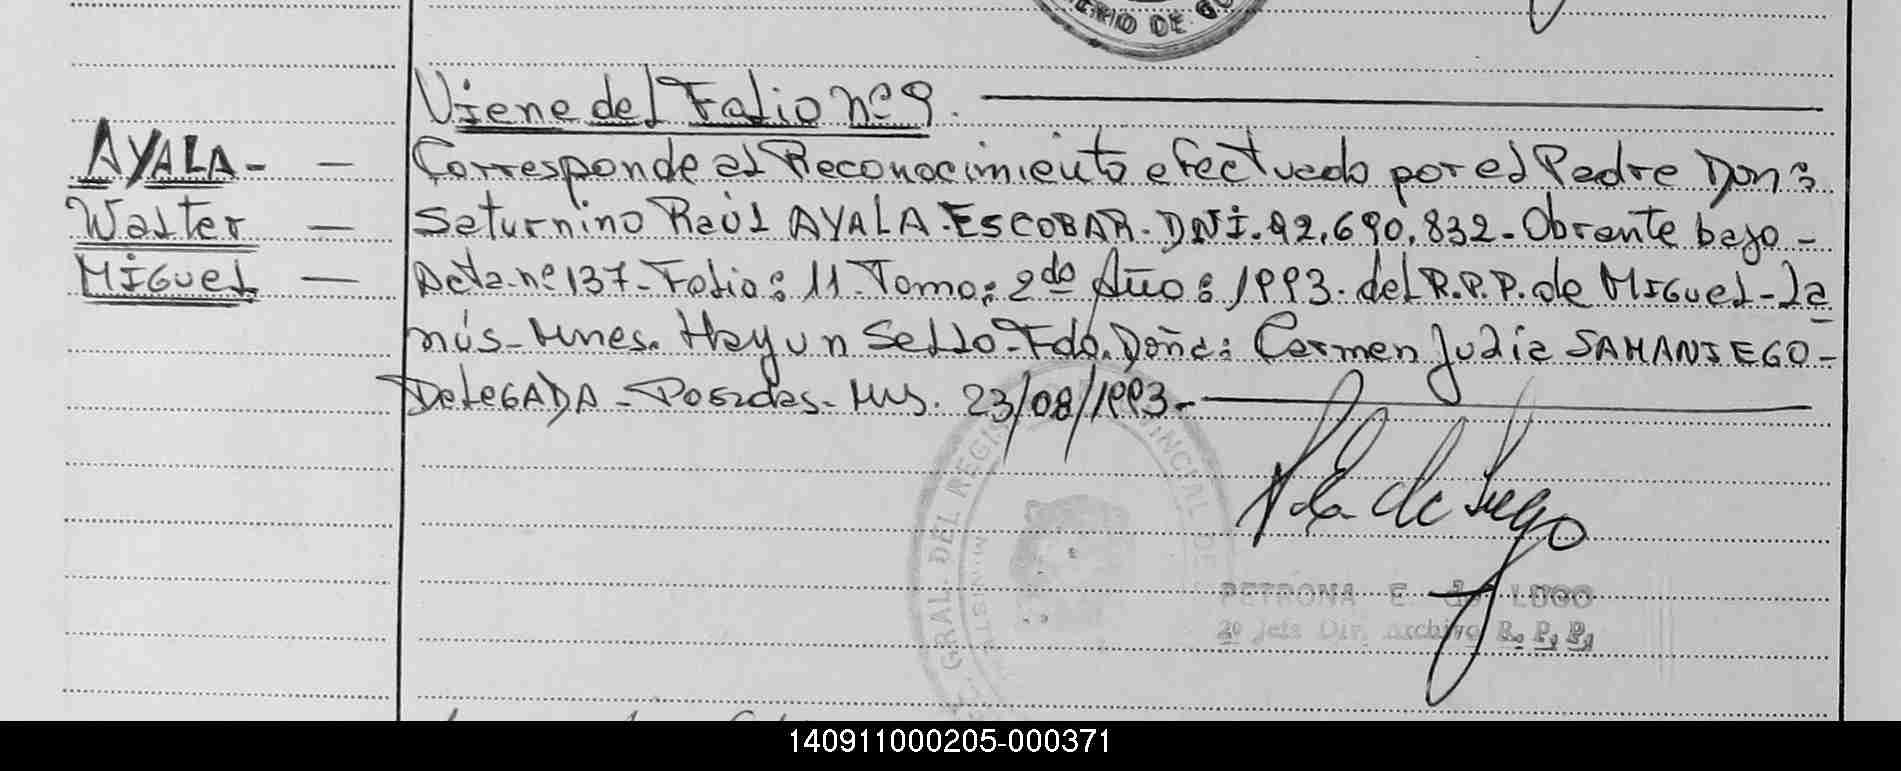 ERIO DE GO
Viene del Folio nº 9.
AYALA - — Corresponde al Reconocimiento efectuado por el Padre Don:
Walter — Saturnino Raúl AYALA-ESCOBAR-DNI.92.690.832-Obrante bajo-
MIGUEL — Acta-nº 137-Folio: 11-Tomo: 2do Año: 1993. del R.P.P. de MIGUEL-La
nús-Mnes. Hay un Sello-Fdo. Doña: Carmen Julia SAMANIEGO-
DELEGADA-Posadas-Mns. 23/08/1993-
GRAL. DEL REGIS VINCIAL DE
MINISTE
de Lugo
PETRONA E. de LUGO
2º Jefe Dir. Archivo R. P. P.
140911000205-000371